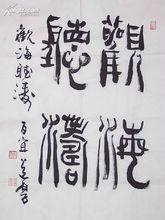 觀海
聽濤
觀海聽濤
百宜